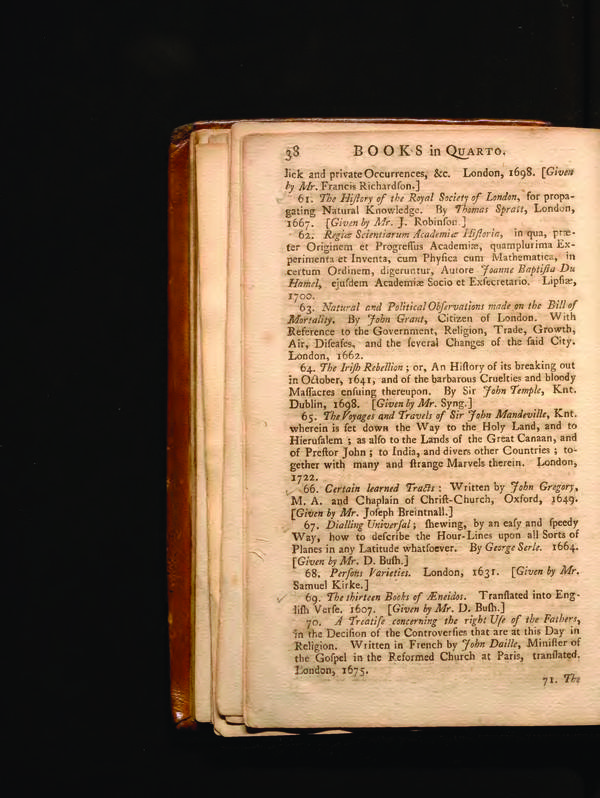 38 BOOKS in QUARTO.
lick and private Occurrences, &c. London, 1698. [Given
by Mr. Francis Richardſon.]
61. The Hiſtory of the Royal Society of London, for propa-
gating Natural Knowledge. By Thomas Spratt, London,
1667. [Given by Mr. J. Robinſon.]
62. Regiæ Scientiarum Academiæ Hiſtoria, in qua, præ-
ter Originem et Progreſſus Academiæ, quamplurima Ex-
perimenta et Inventa, cum Phyſica cum Mathematica, in
certum Ordinem, digeruntur, Autore Joanne Baptiſta Du
Hamel, ejuſdem Academiæ Socio et Exſecretario. Lipſiæ,
1700.
63. Natural and Political Obſervations made on the Bill of
Mortality. By John Grant, Citizen of London. With
Reference to the Government, Religion, Trade, Growth,
Air, Diſeaſes, and the ſeveral Changes of the ſaid City.
London, 1662.
64. The Iriſh Rebellion; or, An Hiſtory of its breaking out
in October, 1641, and of the barbarous Cruelties and bloody
Maſſacres enſuing thereupon. By Sir John Temple, Knt.
Dublin, 1698. [Given by Mr. Syng.]
65. The Voyages and Travels of Sir John Mandeville, Knt.
wherein is ſet down the Way to the Holy Land, and to
Hieruſalem; as alſo to the Lands of the Great Canaan, and
of Preſtor John; to India, and divers other Countries; to-
gether with many and ſtrange Marvels therein. London,
1722.
66. Certain learned Tracts: Written by John Gregory,
M. A. and Chaplain of Chriſt-Church, Oxford, 1649.
[Given by Mr. Joſeph Breintnall.]
67. Dialling Univerſal; ſhewing, by an eaſy and ſpeedy
Way, how to deſcribe the Hour-Lines upon all Sorts of
Planes in any Latitude whatſoever. By George Serle. 1664.
[Given by Mr. D. Buſh.]
68. Perſons Varieties. London, 1631. [Given by Mr.
Samuel Kirke.]
69. The thirteen Books of Æneidos. Tranſlated into Eng-
liſh Verſe. 1607. [Given by Mr. D. Buſh.]
70. A Treatiſe concerning the right Uſe of the Fathers,
in the Deciſion of the Controverſies that are at this Day in
Religion. Written in French by John Daille, Miniſter of
the Goſpel in the Reformed Church at Paris, tranſlated.
London, 1675.
71. The